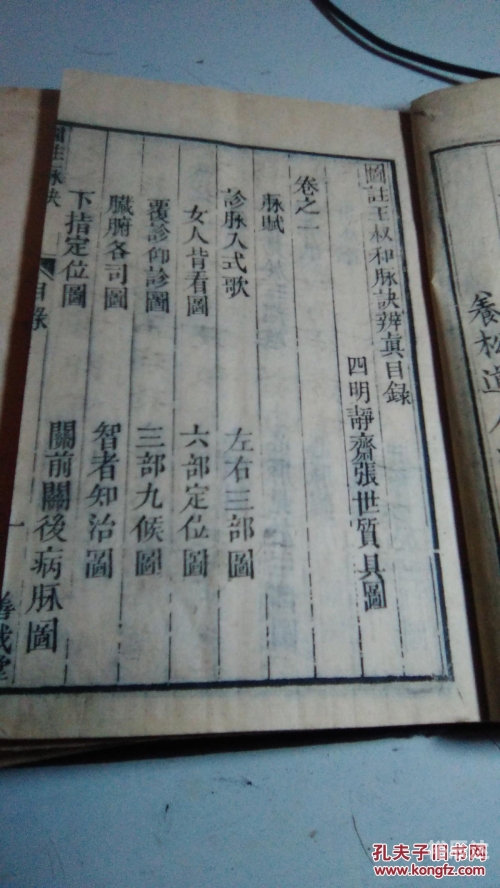 圖註王叔和脉訣辨真目錄
四明靜齋張世賢具圖
卷之一
脉賦
診脉入式歌
左右三部圖
女人背看圖
六部定位圖
覆診仰診圖
三部九候圖
臟腑各司圖
智者知治圖
下指定位圖
關前關後病脉圖
圖註脉訣
目錄
一
善成堂
養松道人
孔夫子旧书网
www.kongfz.com